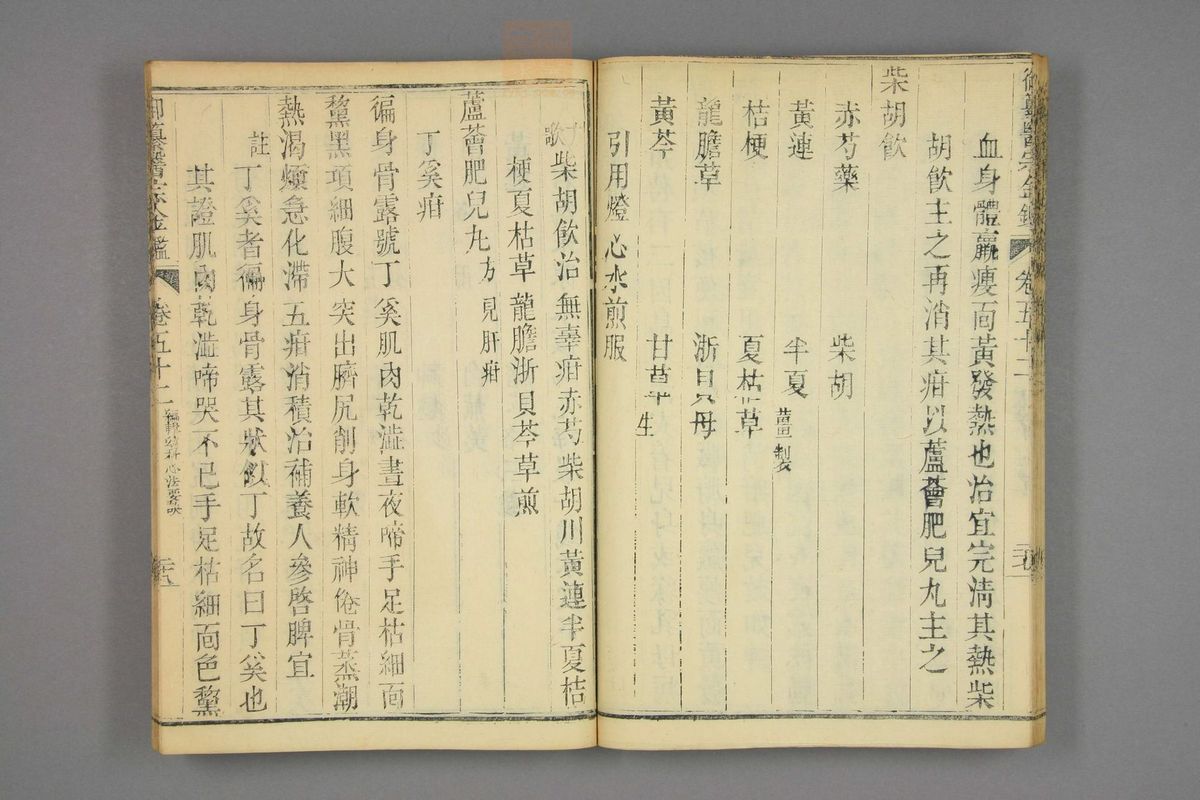 御纂醫宗金鑑 卷五十二
血身體羸瘦面黃發熱也治宜完淸其熱柴
胡飮主之再消其疳以蘆薈肥兒丸主之
柴胡飮
赤芍藥 柴胡
黃連 半夏薑製
桔梗 夏枯草
龍膽草 浙貝母
黃芩 甘草生
引用燈心水煎服
歌柴胡飮治無辜疳赤芍柴胡川黃連半夏桔
梗夏枯草龍膽浙貝芩草煎
蘆薈肥兒丸方見肝疳
丁奚疳
徧身骨露號丁奚肌肉乾澁晝夜啼手足枯細面
黧黑項細腹大突出臍尻削身軟精神倦骨蒸潮
熱渴煩急化滯五疳消積治補養人參啓脾宜
註丁奚者徧身骨露其狀似丁故名曰丁奚也
其證肌肉乾澁啼哭不已手足枯細面色黧
御纂醫宗金鑑 卷五十二 編輯幼科心法要訣